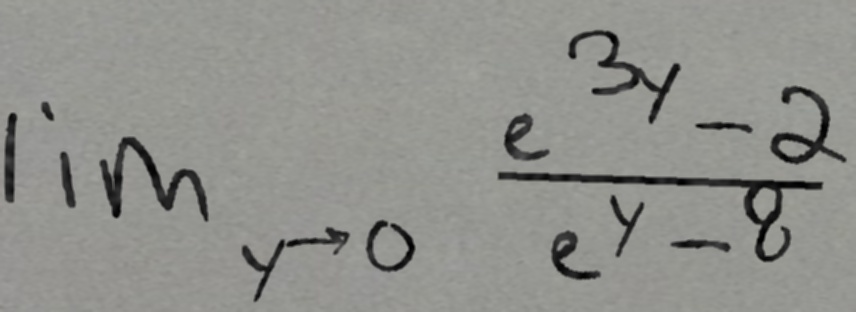 lim_{y→0} \frac{e^{3y}-2}{e^{y}-8}